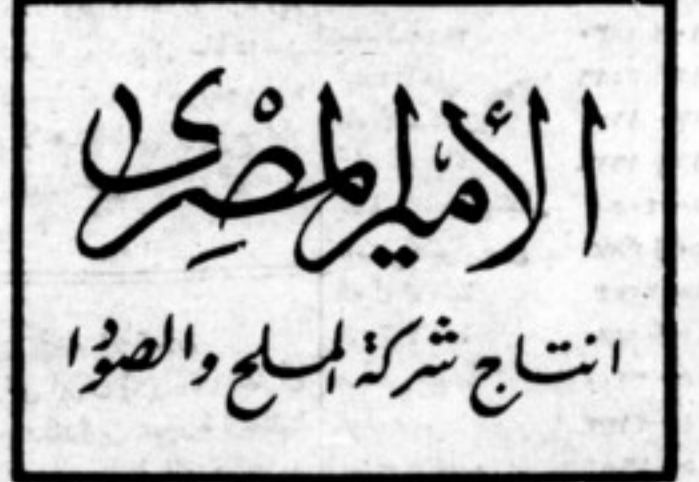 الأمير المصرى
انتاج شركة الملح والصودا